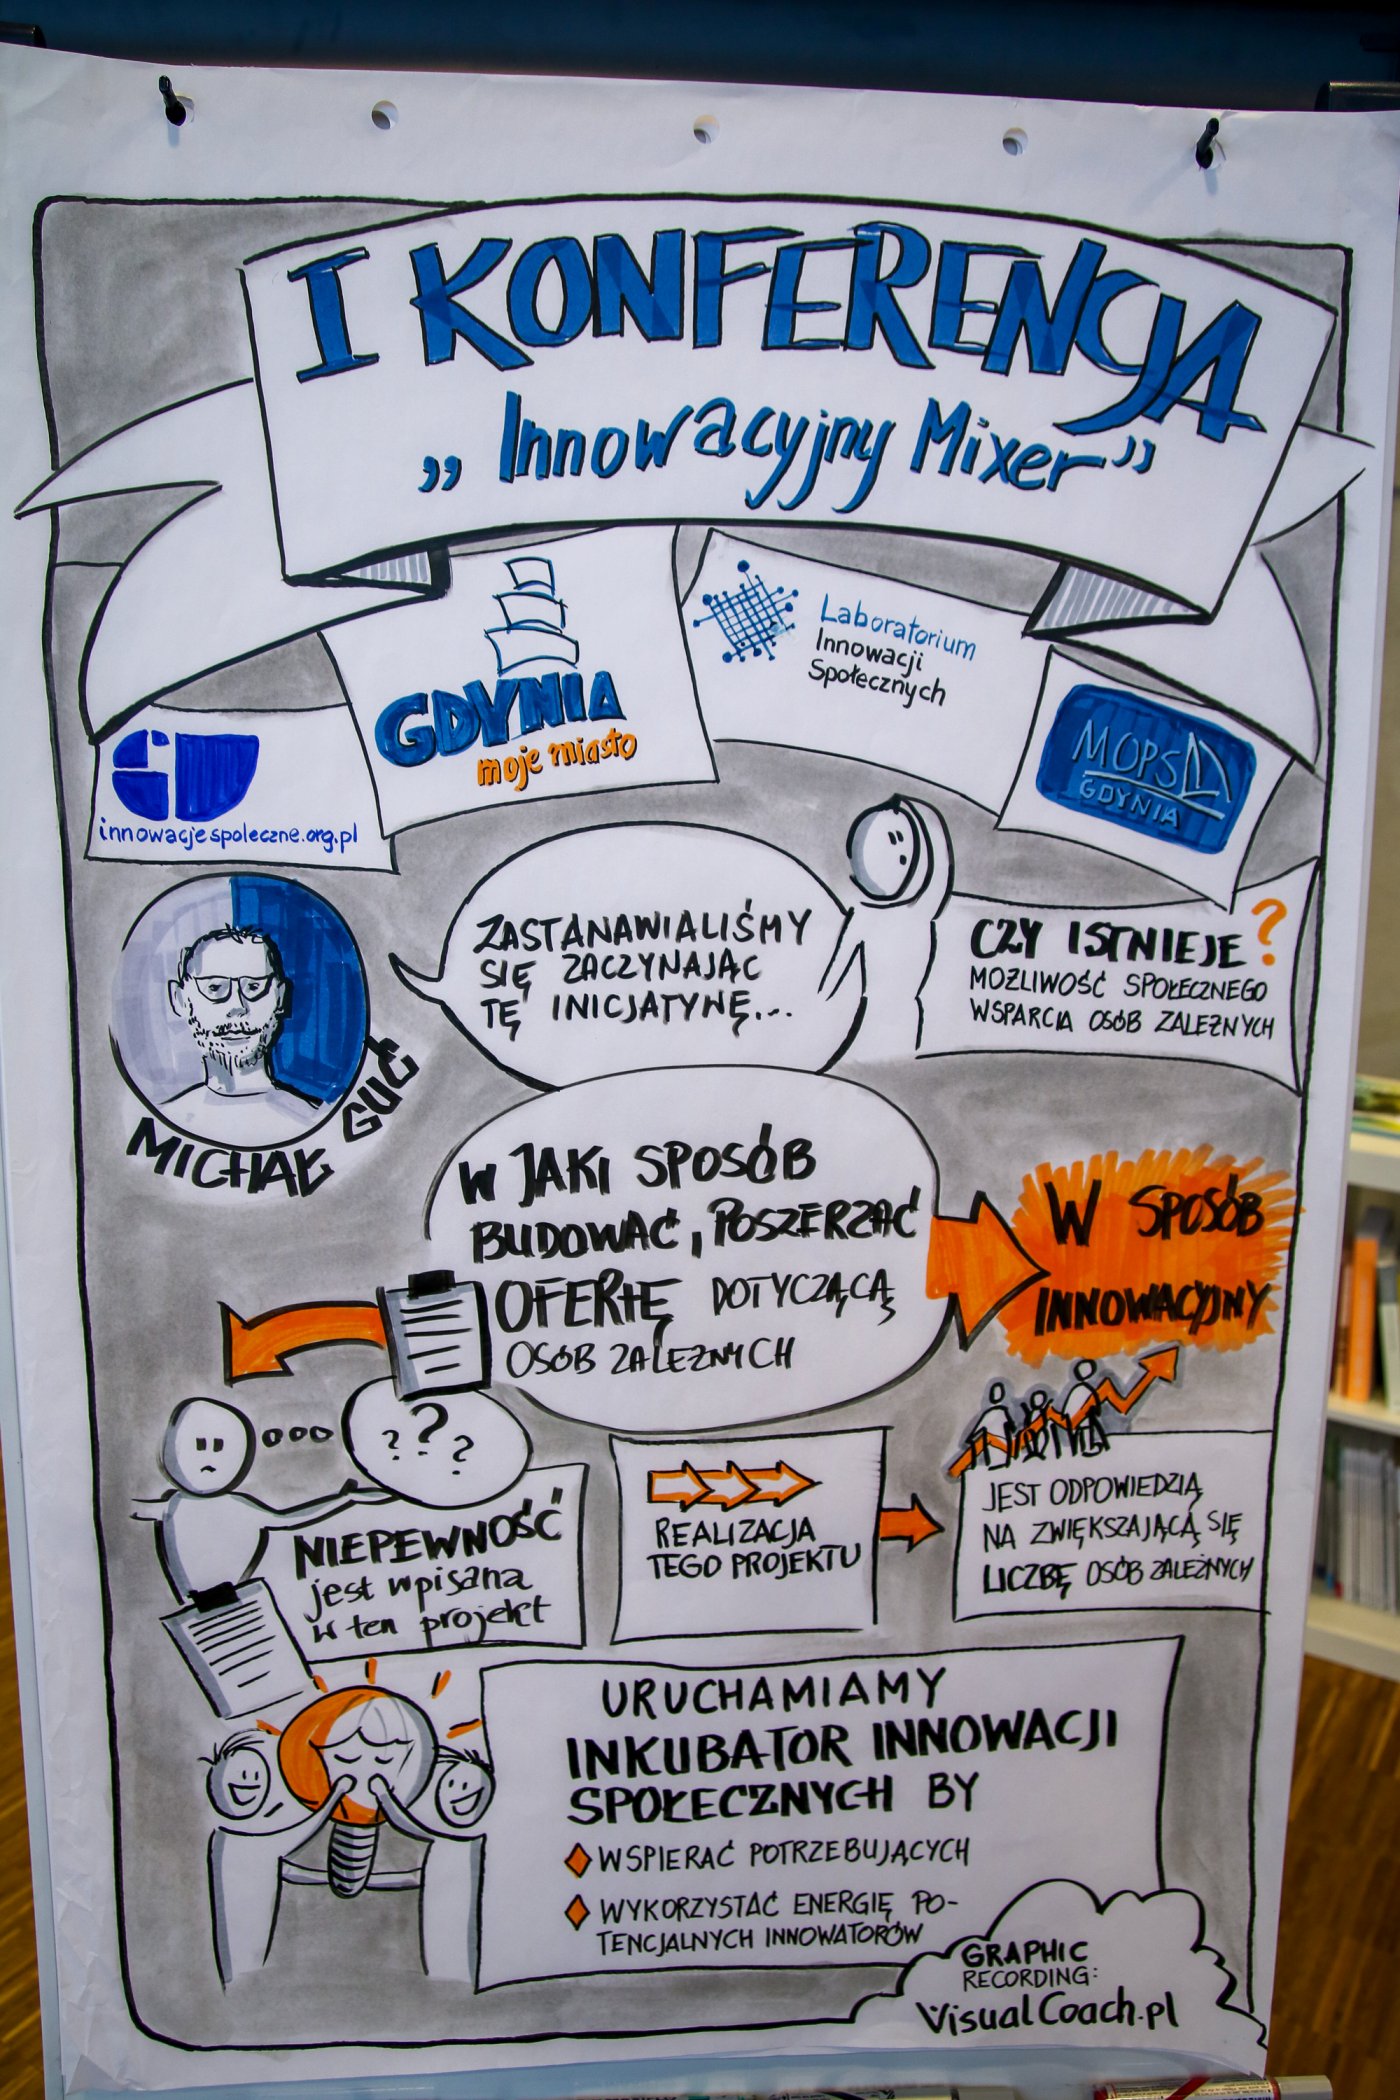 I KONFERENCJA
„Innowacyjny Mixer”
GDYNIA
moje miasto
Laboratorium
Innowacji
Społecznych
innowacjespoleczne.org.pl
MOPS
GDYNIA
MICHAŁ GUĆ
ZASTANAWIALIŚMY
SIĘ ZACZYNAJĄC
TĘ INICJATYWĘ...
CZY ISTNIEJE?
MOŻLIWOŚĆ SPOŁECZNEGO
WSPARCIA OSÓB ZALEŻNYCH
W JAKI SPOSÓB
BUDOWAĆ, POSZERZAĆ
OFERTĘ DOTYCZĄCĄ
OSÓB ZALEŻNYCH
W SPOSÓB
INNOWACYJNY
???
NIEPEWNOŚĆ
jest wpisana
w ten projekt
REALIZACJA
TEGO PROJEKTU
JEST ODPOWIEDZIĄ
NA ZWIĘKSZAJĄCĄ SIĘ
LICZBĘ OSÓB ZALEŻNYCH
URUCHAMIAMY
INKUBATOR INNOWACJI
SPOŁECZNYCH BY
WSPIERAĆ POTRZEBUJĄCYCH
WYKORZYSTAĆ ENERGIĘ PO-
TENCJALNYCH INNOWATORÓW
GRAPHIC
RECORDING:
VisualCoach.pl